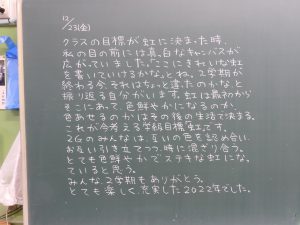 12/23(金)
クラスの目標が虹に決まった時、
私の目の前には真っ白なキャンバスが
広がっていました。「ここにきれいな虹
を書いていけるかな。」とね。2学期が
終わる今、それはちょっと違ったのかなと
振り返る自分がいます。虹は最初から
そこにあって、色鮮やかになるのか、
色あせるのかはその後の生活で決まる。
これが今考える学級目標"虹"です。
2Gのみんなは、互いの色を認め合い、
お互い引き立てつつ、時に混ざり合う。
とても色鮮やかでステキな虹にな
っていると思う。
みんな2学期もありがとう。
とても楽しく、充実した2022年でした。